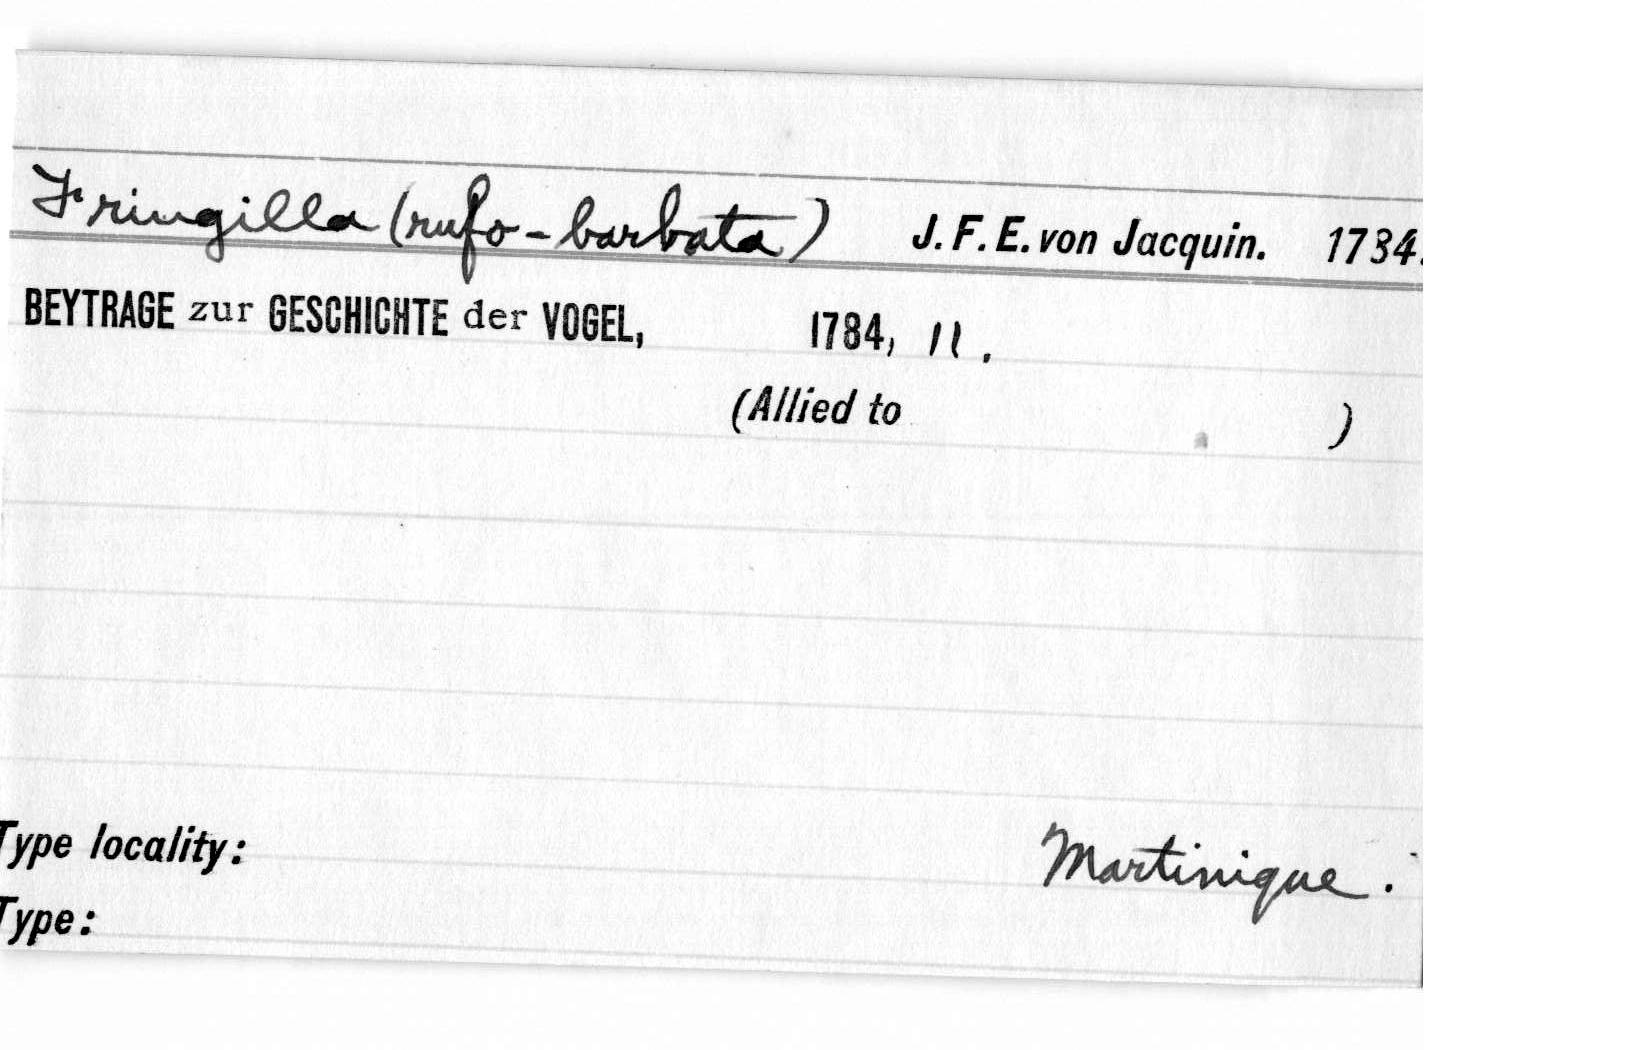 Fringilla (rufo-barbata) J. F. E. von Jacquin. 1784.
BEYTRAGE zur GESCHICHTE der VOGEL, 1784, 11.
(Allied to )
Type locality: Martinique.
Type: